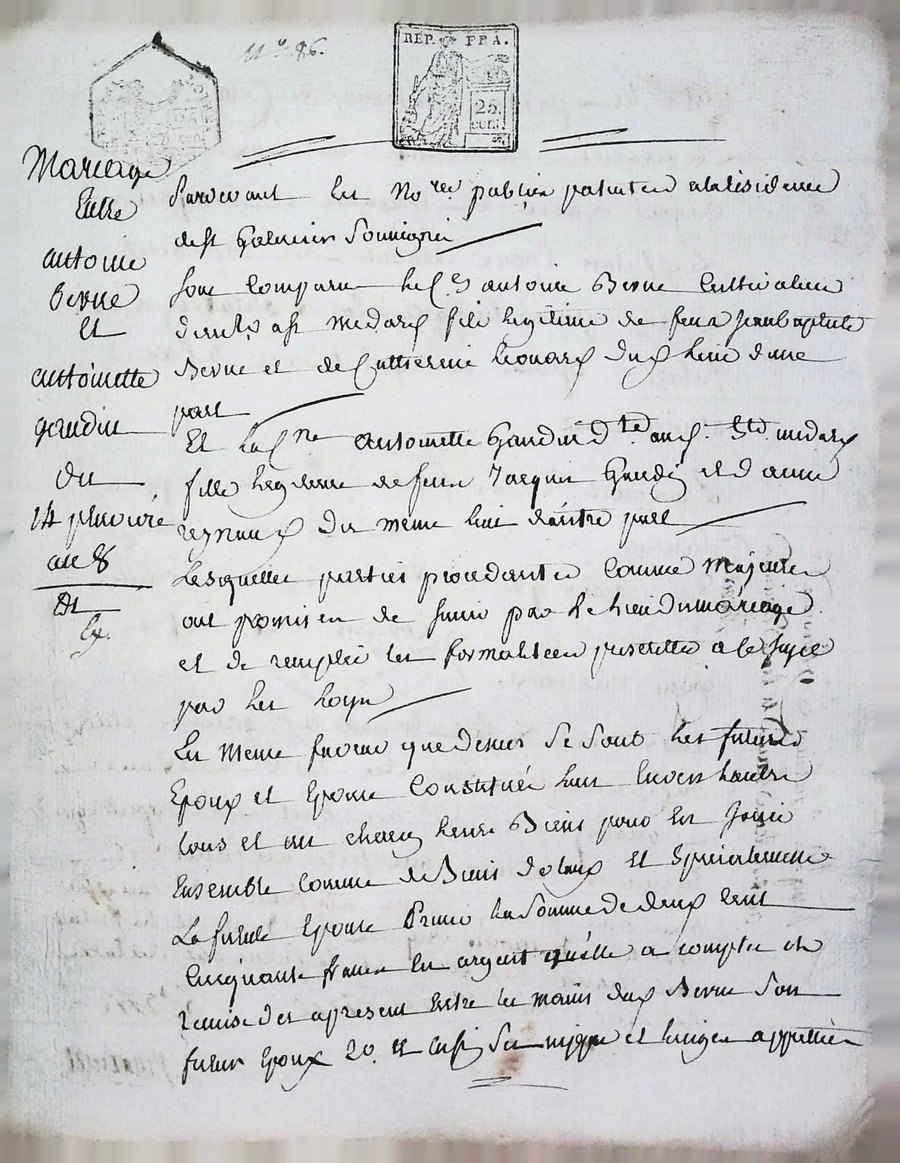 N.° 86.
REP. FRA.
25 cent.
Mariage
Entre
antoine
Berne
Et
antoinette
gaudin
du
14 pluviose
an 8
Pardevant les No.res publics patentés ala residence
de st galmier soussignés
sont comparu le C.n antoine Berne Cultivateur
dem.t a st medard fils legitime de feu Jean baptiste
Berne et de Catherine leonard dud. lieu dune
part
Et la C.nne antoinette Gaudin d.te aud. St medard
fille legitime de feu Jacques Gaudin et d'anne
reynaud du meme lieu d'autre part
Lesquelles parties procedantes comme majeures
ont promis de sunir par le lien du mariage
et de remplir les formalites prescrites a ce sujet
par les loyx
En meme faveur que dessus se sont les futurs
Epoux et Epouse Constitués lun Envers lautre
tous et un chacun leurs Biens pour en Jouir
Ensemble comme de Biens dotaux et specialement
La future Epouse la somme de deux cent
Cinquante francs En argent quelle a compté et
remise des apresent Entre les mains dud. Berne son
futur Epoux 20. et ses nippes et linges